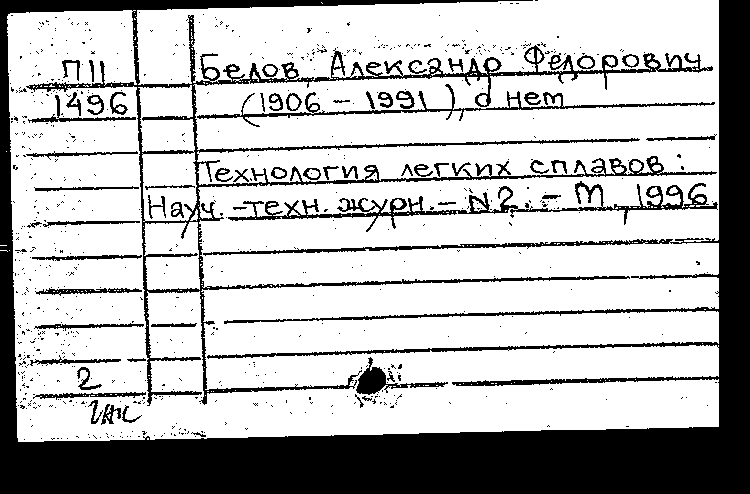 П11 Белов, Александр Федорович
1496 (1906 - 1991), о нем
Технология легких сплавов:
Науч.-техн. журн. - N2. - М., 1996.
2